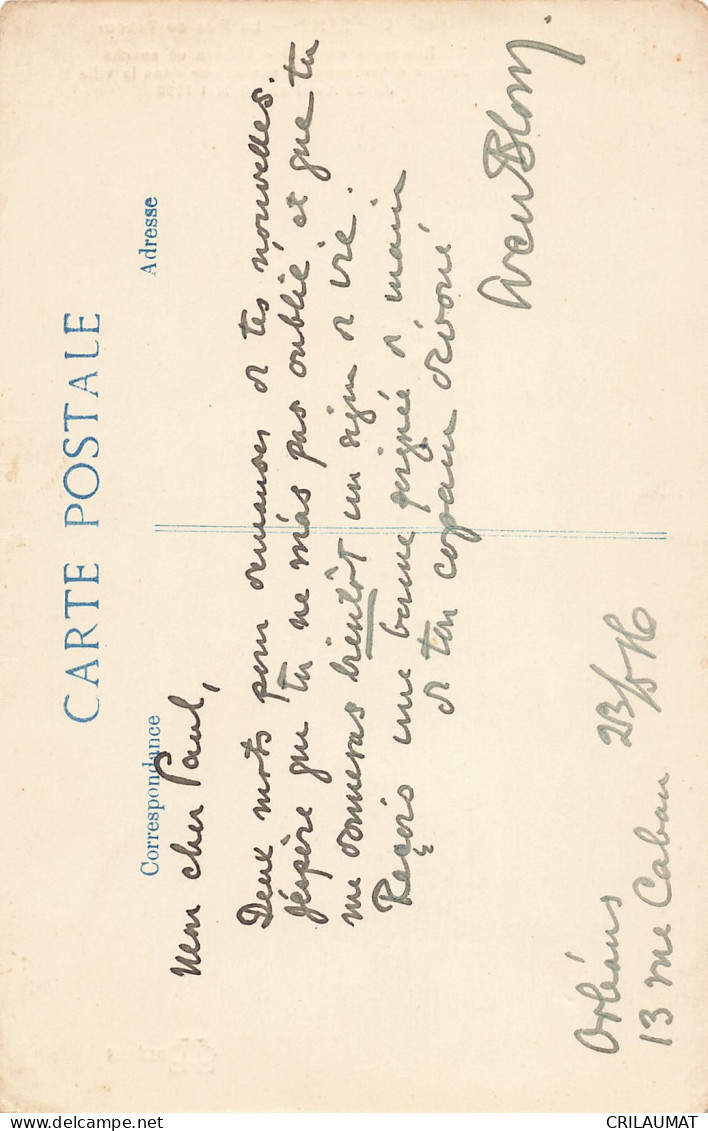 CARTE POSTALE
Correspondance
Adresse
Mon cher Paul,
Deux mots pour demander de tes nouvelles.
J'espère que tu ne m'as pas oublié, et que tu
me donneras bientôt un signe de vie.
Reçois une bonne poignée de main
de ton copain dévoué
Orléans 23/5/16
13 rue Caban
CRILAUMAT